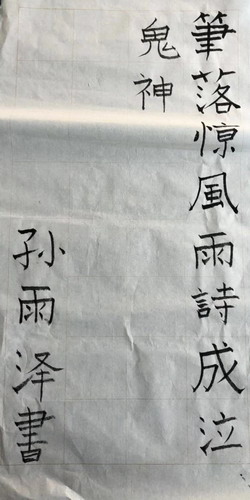 筆落惊風雨詩成泣
鬼神
孙雨泽書